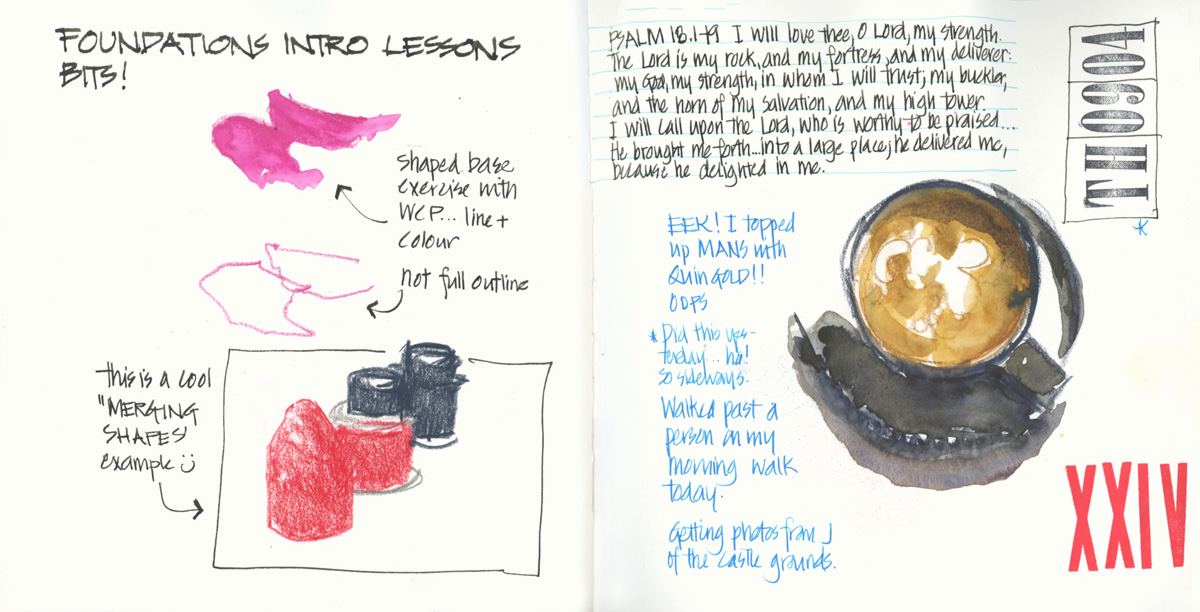 FOUNDATIONS INTRO LESSONS
BITS!
shaped base
exercise with
WCP... line +
colour
not full outline
this is a cool
"MERGING
SHAPES"
example
PSALM 18.1-19 I will love thee, O Lord, my strength.
The Lord is my rock, and my fortress, and my deliverer;
my God, my strength, in whom I will trust; my buckler,
and the horn of my salvation, and my high tower.
I will call upon the Lord, who is worthy to be praised....
He brought me forth...into a large place; he delivered me,
because he delighted in me.
TH
*
EEK! I topped
up MANS with
Quin GOLD!!
OOPS
* Did this yes-
terday... ha!
So sideways.
Walked past a
person on my
morning walk
today.
Getting photos from J
of the castle grounds.
XXIV